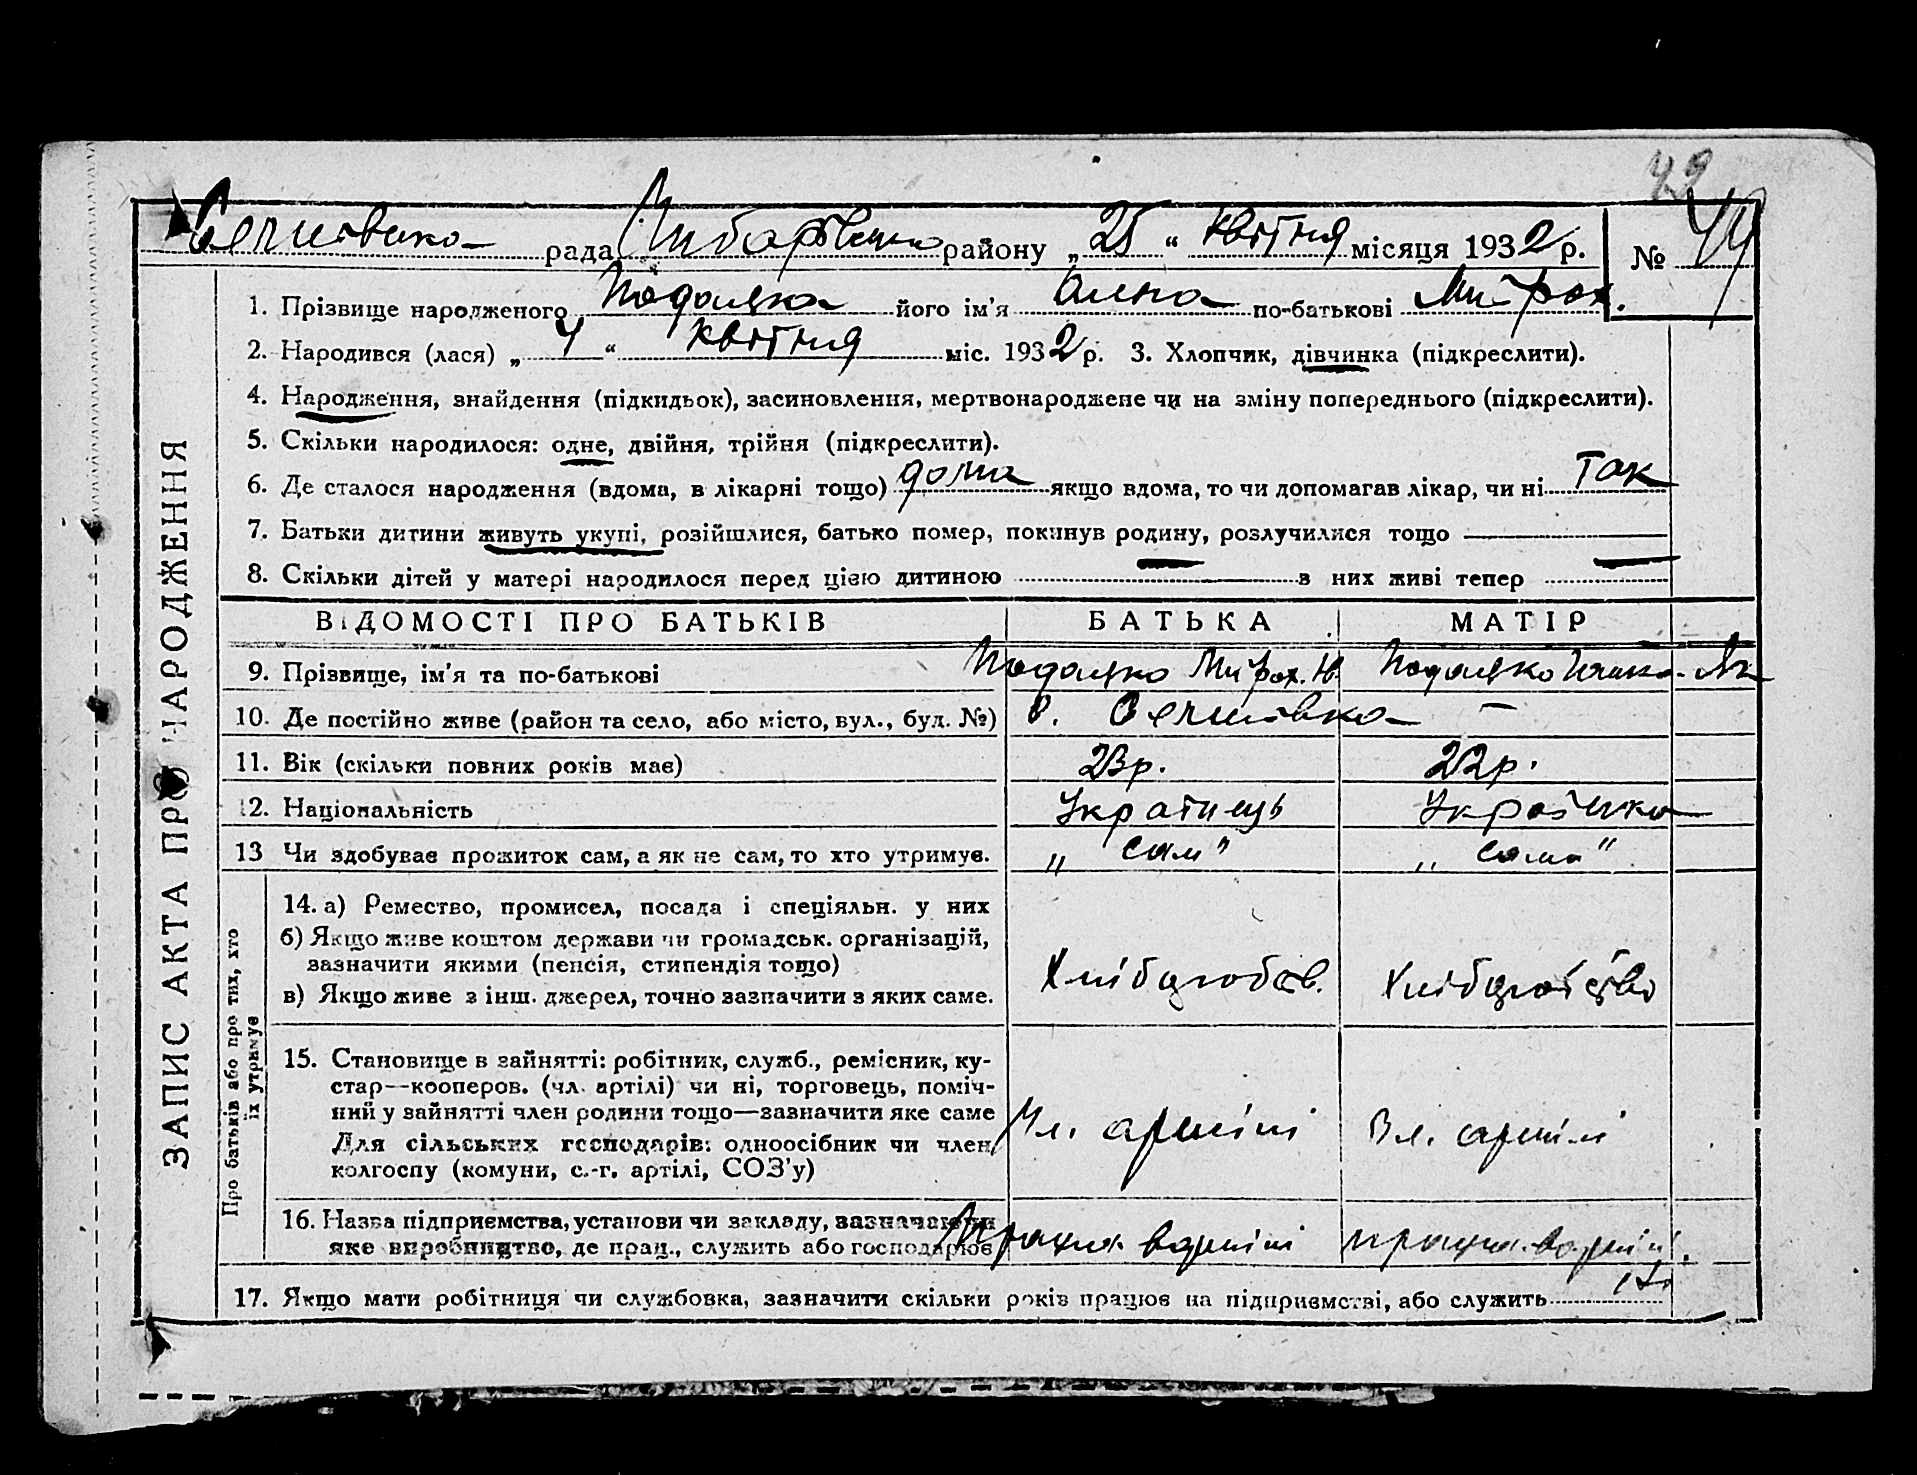 49
рада районву „25“ квітня місяця 1932 р. № 44
1. Прізвище народженого його ім'я Олена по-батькові Митроф.
2. Народився (лася) „4“ квітня міс. 1932 р. 3. Хлопчик, дівчинка (підкреслити).
4. Народження, знайдення (підкидьок), засиновлення, мертвонароджене чи на зміну попереднього (підкреслити).
5. Скільки народилося: одне, двійня, трійня (підкреслити).
6. Де сталося народження (вдома, в лікарні тощо) дома якщо вдома, то чи допомагав лікар, чи ні Так
7. Батьки дитини живуть укупі, розійшлися, батько помер, покинув родину, розлучилися тощо —
8. Скільки дітей у матері народилося перед цією дитиною — в них живі тепер —
ЗАПИС АКТА ПРО НАРОДЖЕННЯ
ВІДОМОСТІ ПРО БАТЬКІВ БАТЬКА МАТІР
9. Прізвище, ім'я та по-батькові
10. Де постійно живе (район та село, або місто, вул., буд. №) с. —
11. Вік (скільки повних років має) 23 р. 22 р.
12. Національність Українець Українка
13 Чи здобуває прожиток сам, а як не сам, то хто утримує. „сам” „сама”
Про батьків або про тих, хто
їх утримує
14. а) Ремество, промисел, посада і спеціяльн. у них
б) Якщо живе коштом держави чи громадськ. організацій,
зазначити якими (пенсія, стипендія тощо)
в) Якщо живе з інш. джерел, точно зазначити з яких саме.
15. Становище в зайнятті: робітник, служб., ремісник, ку-
стар—кооперов. (чл. артілі) чи ні, торговець, поміч-
ний у зайнятті член родини тощо—зазначити яке саме
Для сільських господарів: одноосібник чи член
колгоспу (комуни, с.-г. артілі, СОЗ'у)
Чл. артілі Чл. артілі
16. Назва підприємства, установи чи закладу, зазначаючи
яке виробництво, де прац., служить або господарює
17. Якщо мати робітниця чи службовка, зазначити скільки років працює на підприємстві, або служить